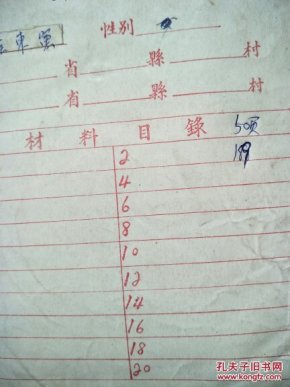 東黨
性別 女
省 縣 村
省 縣 村
材料目錄 50页
189
2
4
6
8
10
12
14
16
18
20
孔夫子旧书网